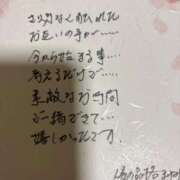 さり気なく触れた
お互いの手が・・・・
今から始まる事・・・
考えるだけで・・・・・
素敵なお時間
ご一緒できて
嬉しかったです。